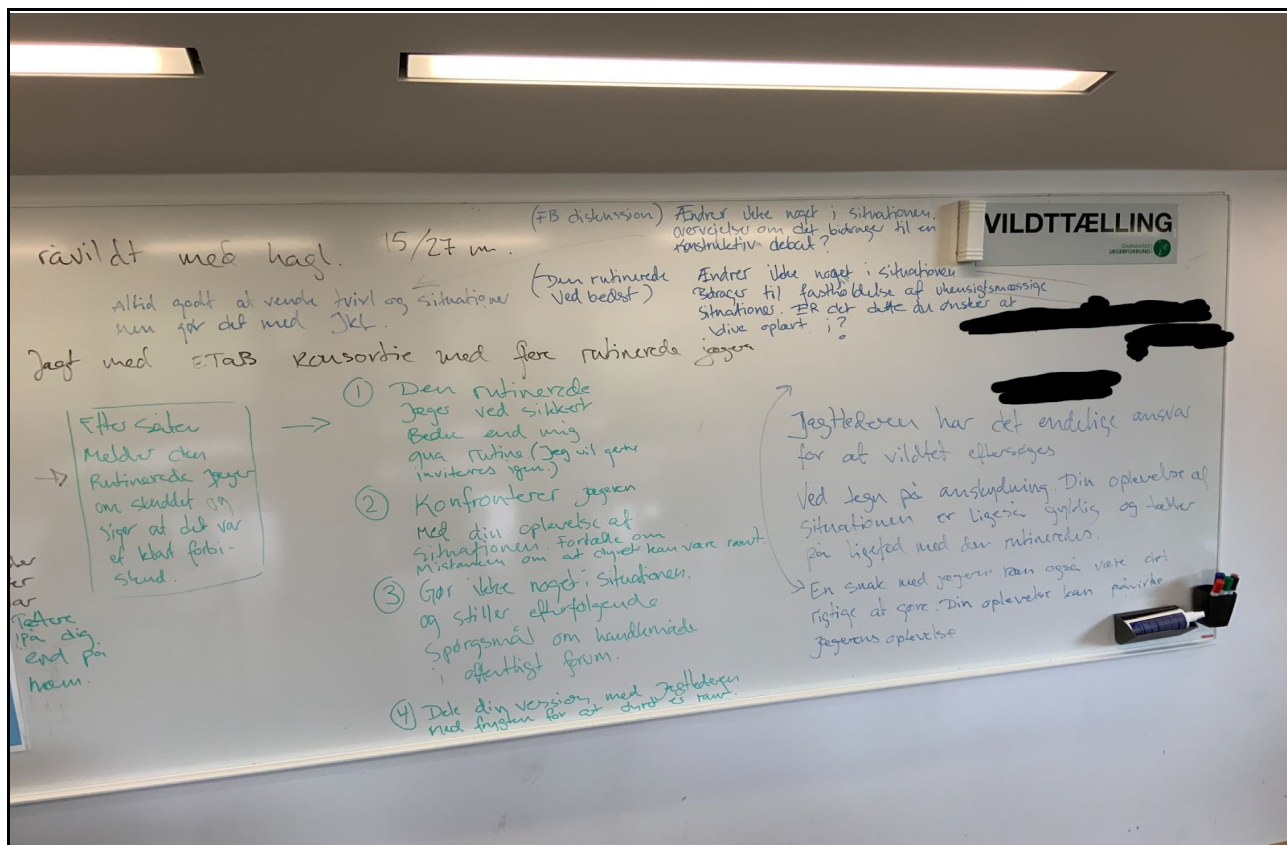 råvildt med hagl. 15/27 m.
Altid godt at vende tvivl og situationer
Men gør det med JKF.
(FB diskussion)
Ændrer ikke noget i situationen.
overvejelse om det bidrager til en
konstruktiv debat?
(Den rutinerede
ved bedst)
Ændrer ikke noget i situationen
Bidrager til fastholdelse af uhensigtsmæssige
situationer. ER det dette du ønsker at
blive oplært i?
VILDTTÆLLING
DANMARKS
JÆGERFORBUND
Jagt med ETAB konsortie med flere rutinerede jægere
Efter såten
Melder den
Rutinerede Jæger
om skuddet og
siger at det var
et klart forbi-
skud.
Tættere
på dig
end på
ham.
① Den rutinerede
Jæger ved sikkert
Bedre end mig
qua rutine (Jeg vil gerne
inviteres igen.)
② Konfronterer jægeren
Med din oplevelse af
situationen. Fortælle om
Mistanken om at dyret kan være ramt.
③ Gør ikke noget i situationen.
og stiller efterfølgende
Spørgsmål om handlemåde
i offentligt forum.
④ Dele din version med Jagtlederen
med frygten for at dyret er ramt.
Jagtlederen har det endelige ansvar
for at vildtet eftersøges
Ved tegn på anskydning. Din oplevelse af
situationen er ligeså gyldig og tæller
på ligefod med den rutineredes.
En snak med jægeren kan også være det
rigtige at gøre. Din oplevelse kan påvirke
jægerens oplevelse